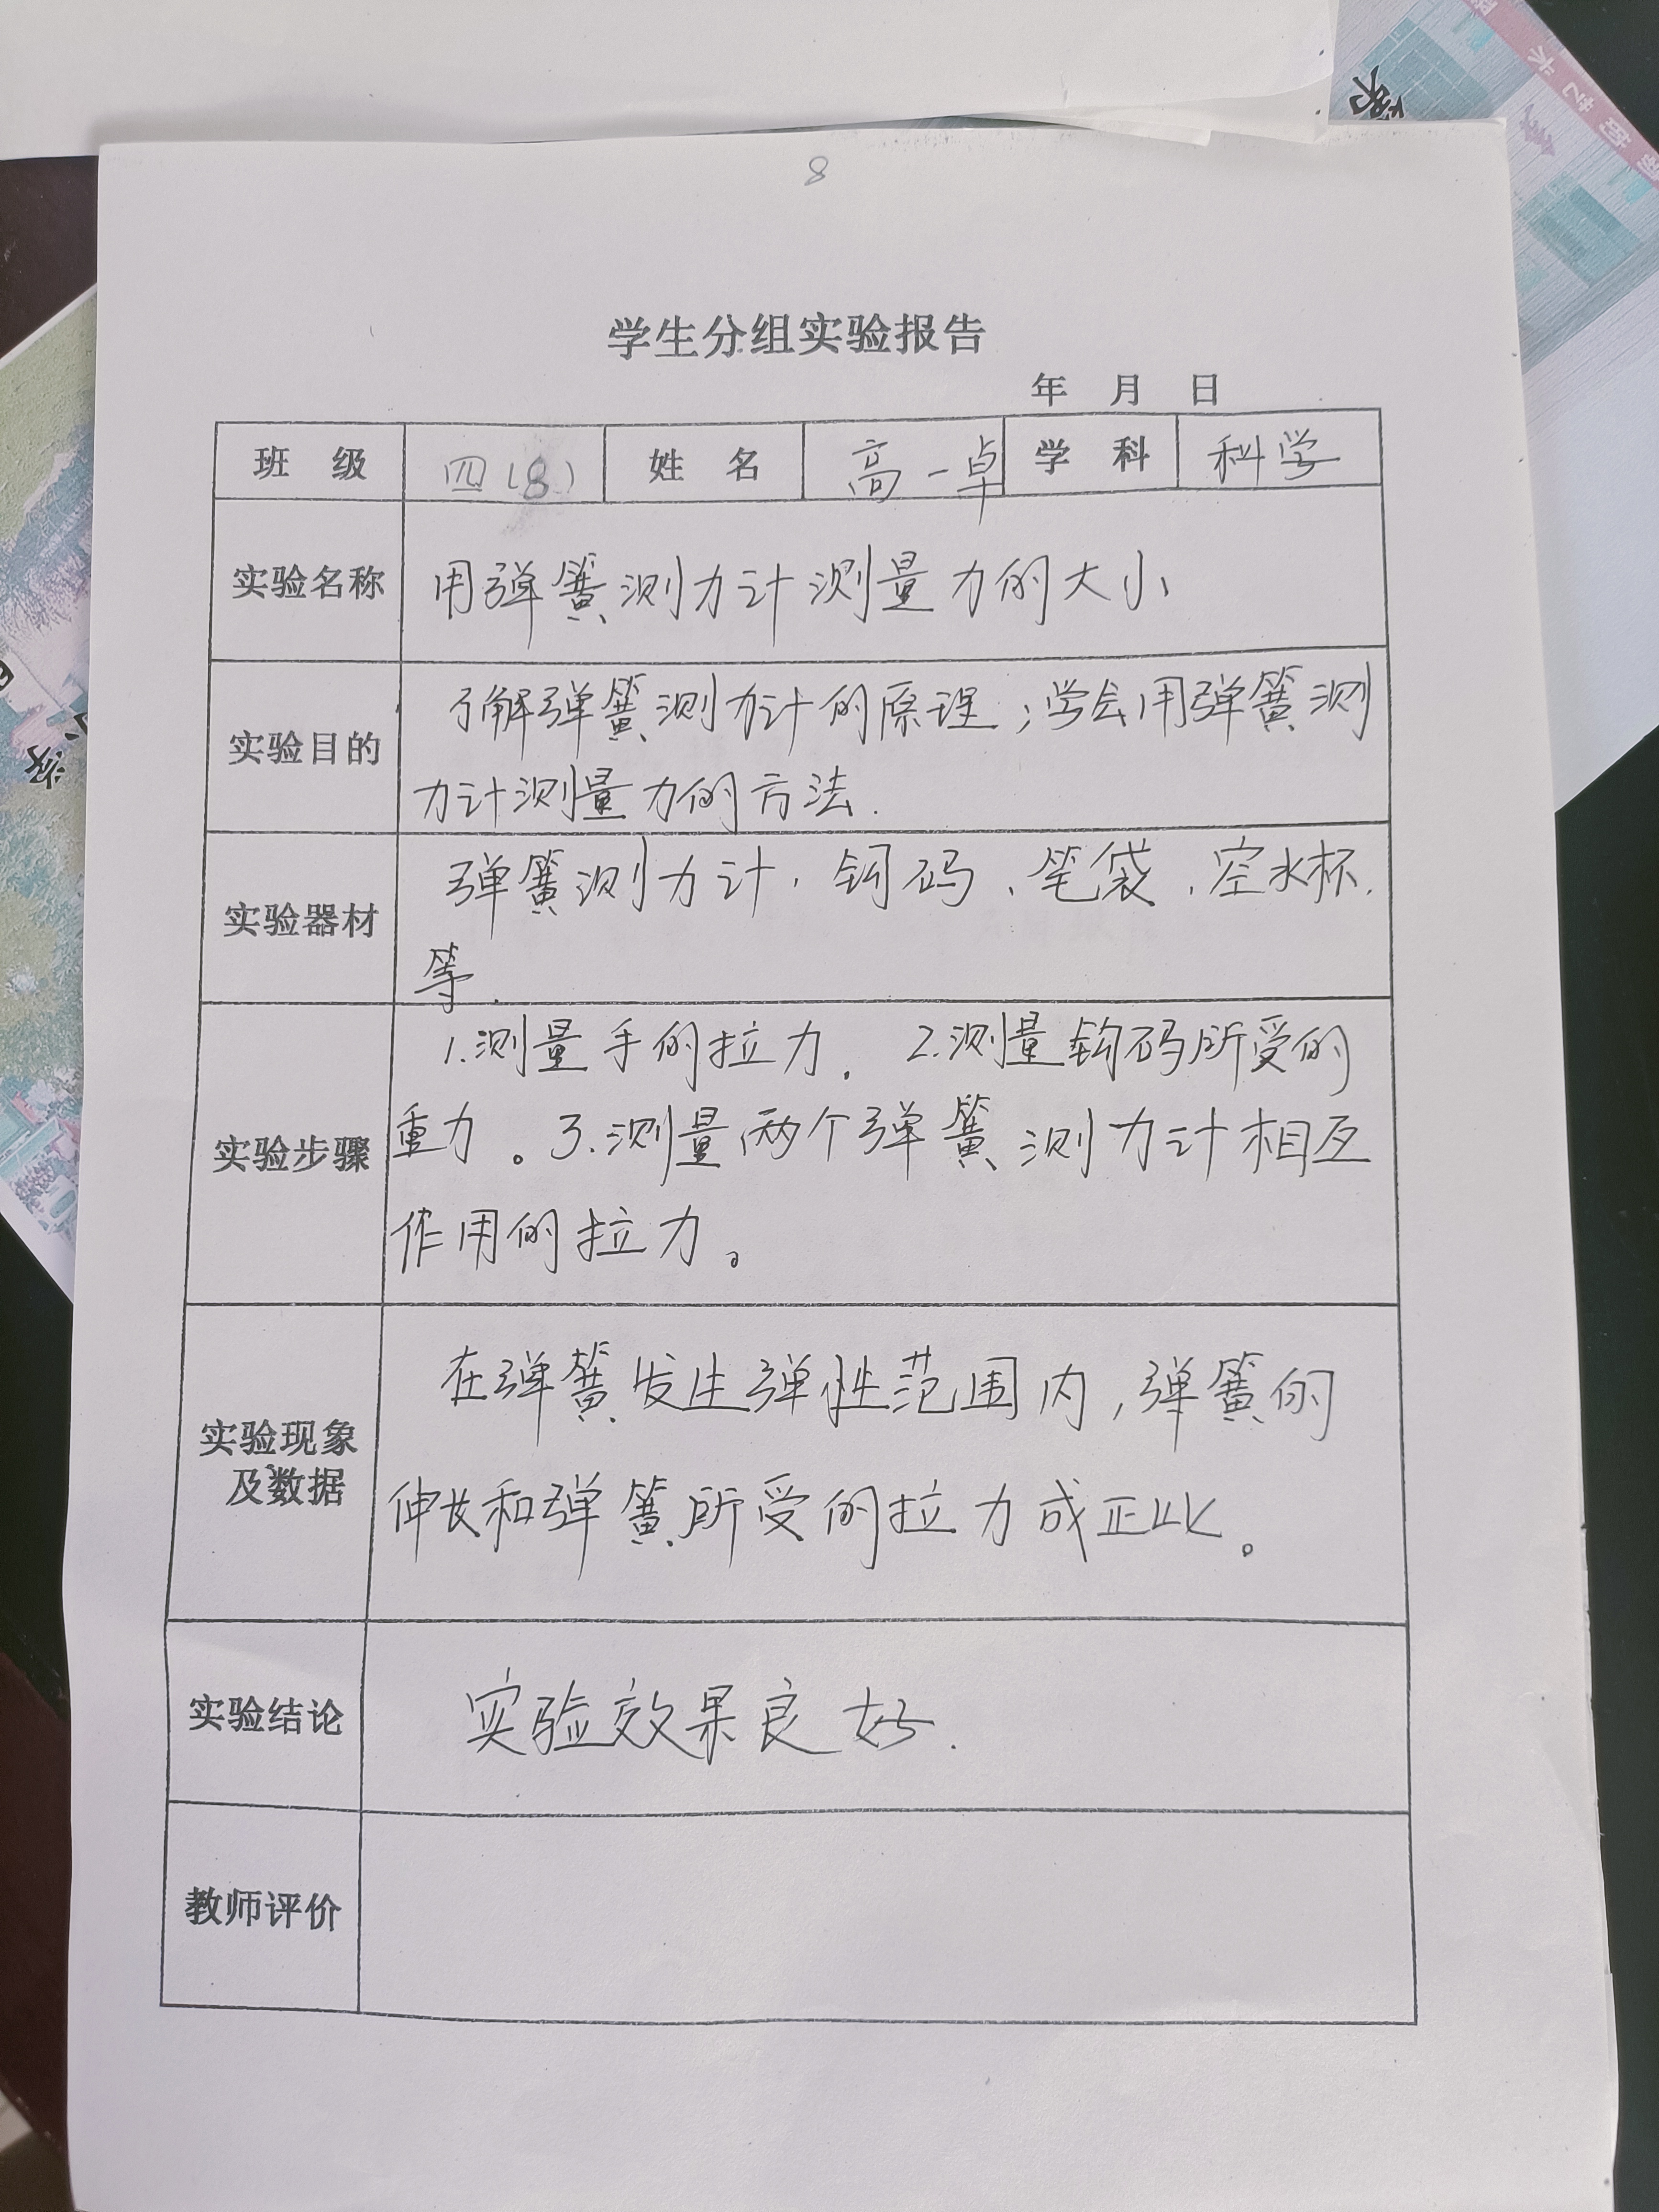 8
学生分组实验报告
年 月 日
班 级 四(8) 姓 名 高一卓 学 科 科学
实验名称 用弹簧测力计测量力的大小
了解弹簧测力计的原理；学会用弹簧测
实验目的
力计测量力的方法.
弹簧测力计、钩码、笔袋、空水杯.
实验器材
等.
1.测量手的拉力. 2.测量钩码所受的
实验步骤 重力。3.测量两个弹簧测力计相互
作用的拉力。
在弹簧发生弹性范围内,弹簧的
实验现象
及数据 伸长和弹簧所受的拉力成正比。
实验结论 实验效果良好.
教师评价